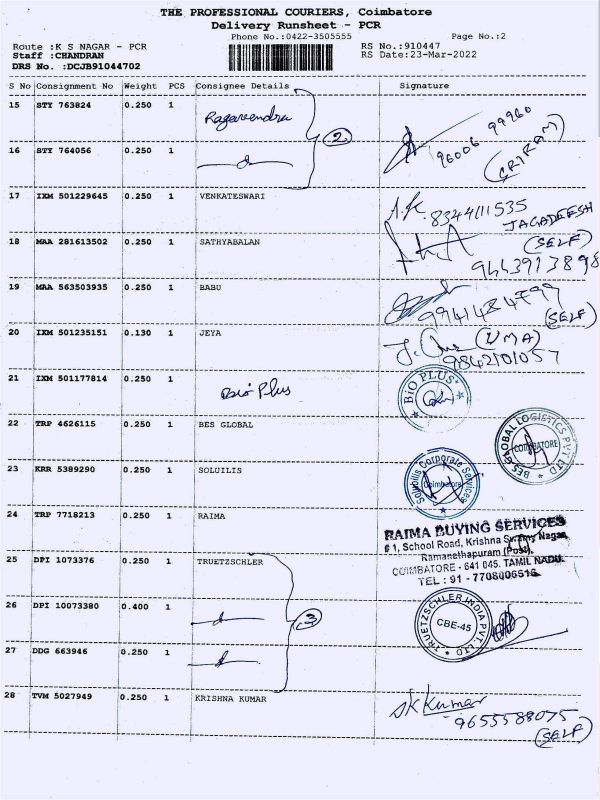 THE PROFESSIONAL COURIERS, Coimbatore
Delivery Runsheet - PCR
Phone No.:0422-3505555 Page No.:2
Route :K S NAGAR - PCR RS No.:910447
Staff :CHANDRAN RS Date:23-Mar-2022
DRS No. :DCJB91044702
S No Consignment No Weight PCS Consignee Details Signature
15 STY 763824 0.250 1 Ragaveendra
2
96006 99960
(SRIRAM)
16 STY 764056 0.250 1
17 IXM 501229645 0.250 1 VENKATESWARI
8344111535
JAGADEESH
18 MAA 281613502 0.250 1 SATHYABALAN
(SELF)
9443913898
19 MAA 563503935 0.250 1 BABU
9941484799
(SELF)
20 IXM 501235151 0.130 1 JEYA
(UMA)
9842101057
21 IXM 501177814 0.250 1 Bio Plus
BIO PLUS
22 TRP 4626115 0.250 1 BES GLOBAL
BES GLOBAL LOGISTICS PVT LTD
COIMBATORE
23 KRR 5389290 0.250 1 SOLUILIS
Solubilis Corporate Services
Coimbatore
24 TRP 7718213 0.250 1 RAIMA
RAIMA BUYING SERVICES
# 1, School Road, Krishna Swamy Nagar,
Ramanathapuram (Post),
COIMBATORE - 641 045. TAMIL NADU.
TEL : 91 - 7708006516
25 DPI 1073376 0.250 1 TRUETZSCHLER
TRUETZSCHLER INDIA PVT. LTD
CBE-45
26 DPI 10073380 0.400 1
3
27 DDG 663946 0.250 1
28 TVM 5027949 0.250 1 KRISHNA KUMAR
SK Kumar
9655588075
(SELF)